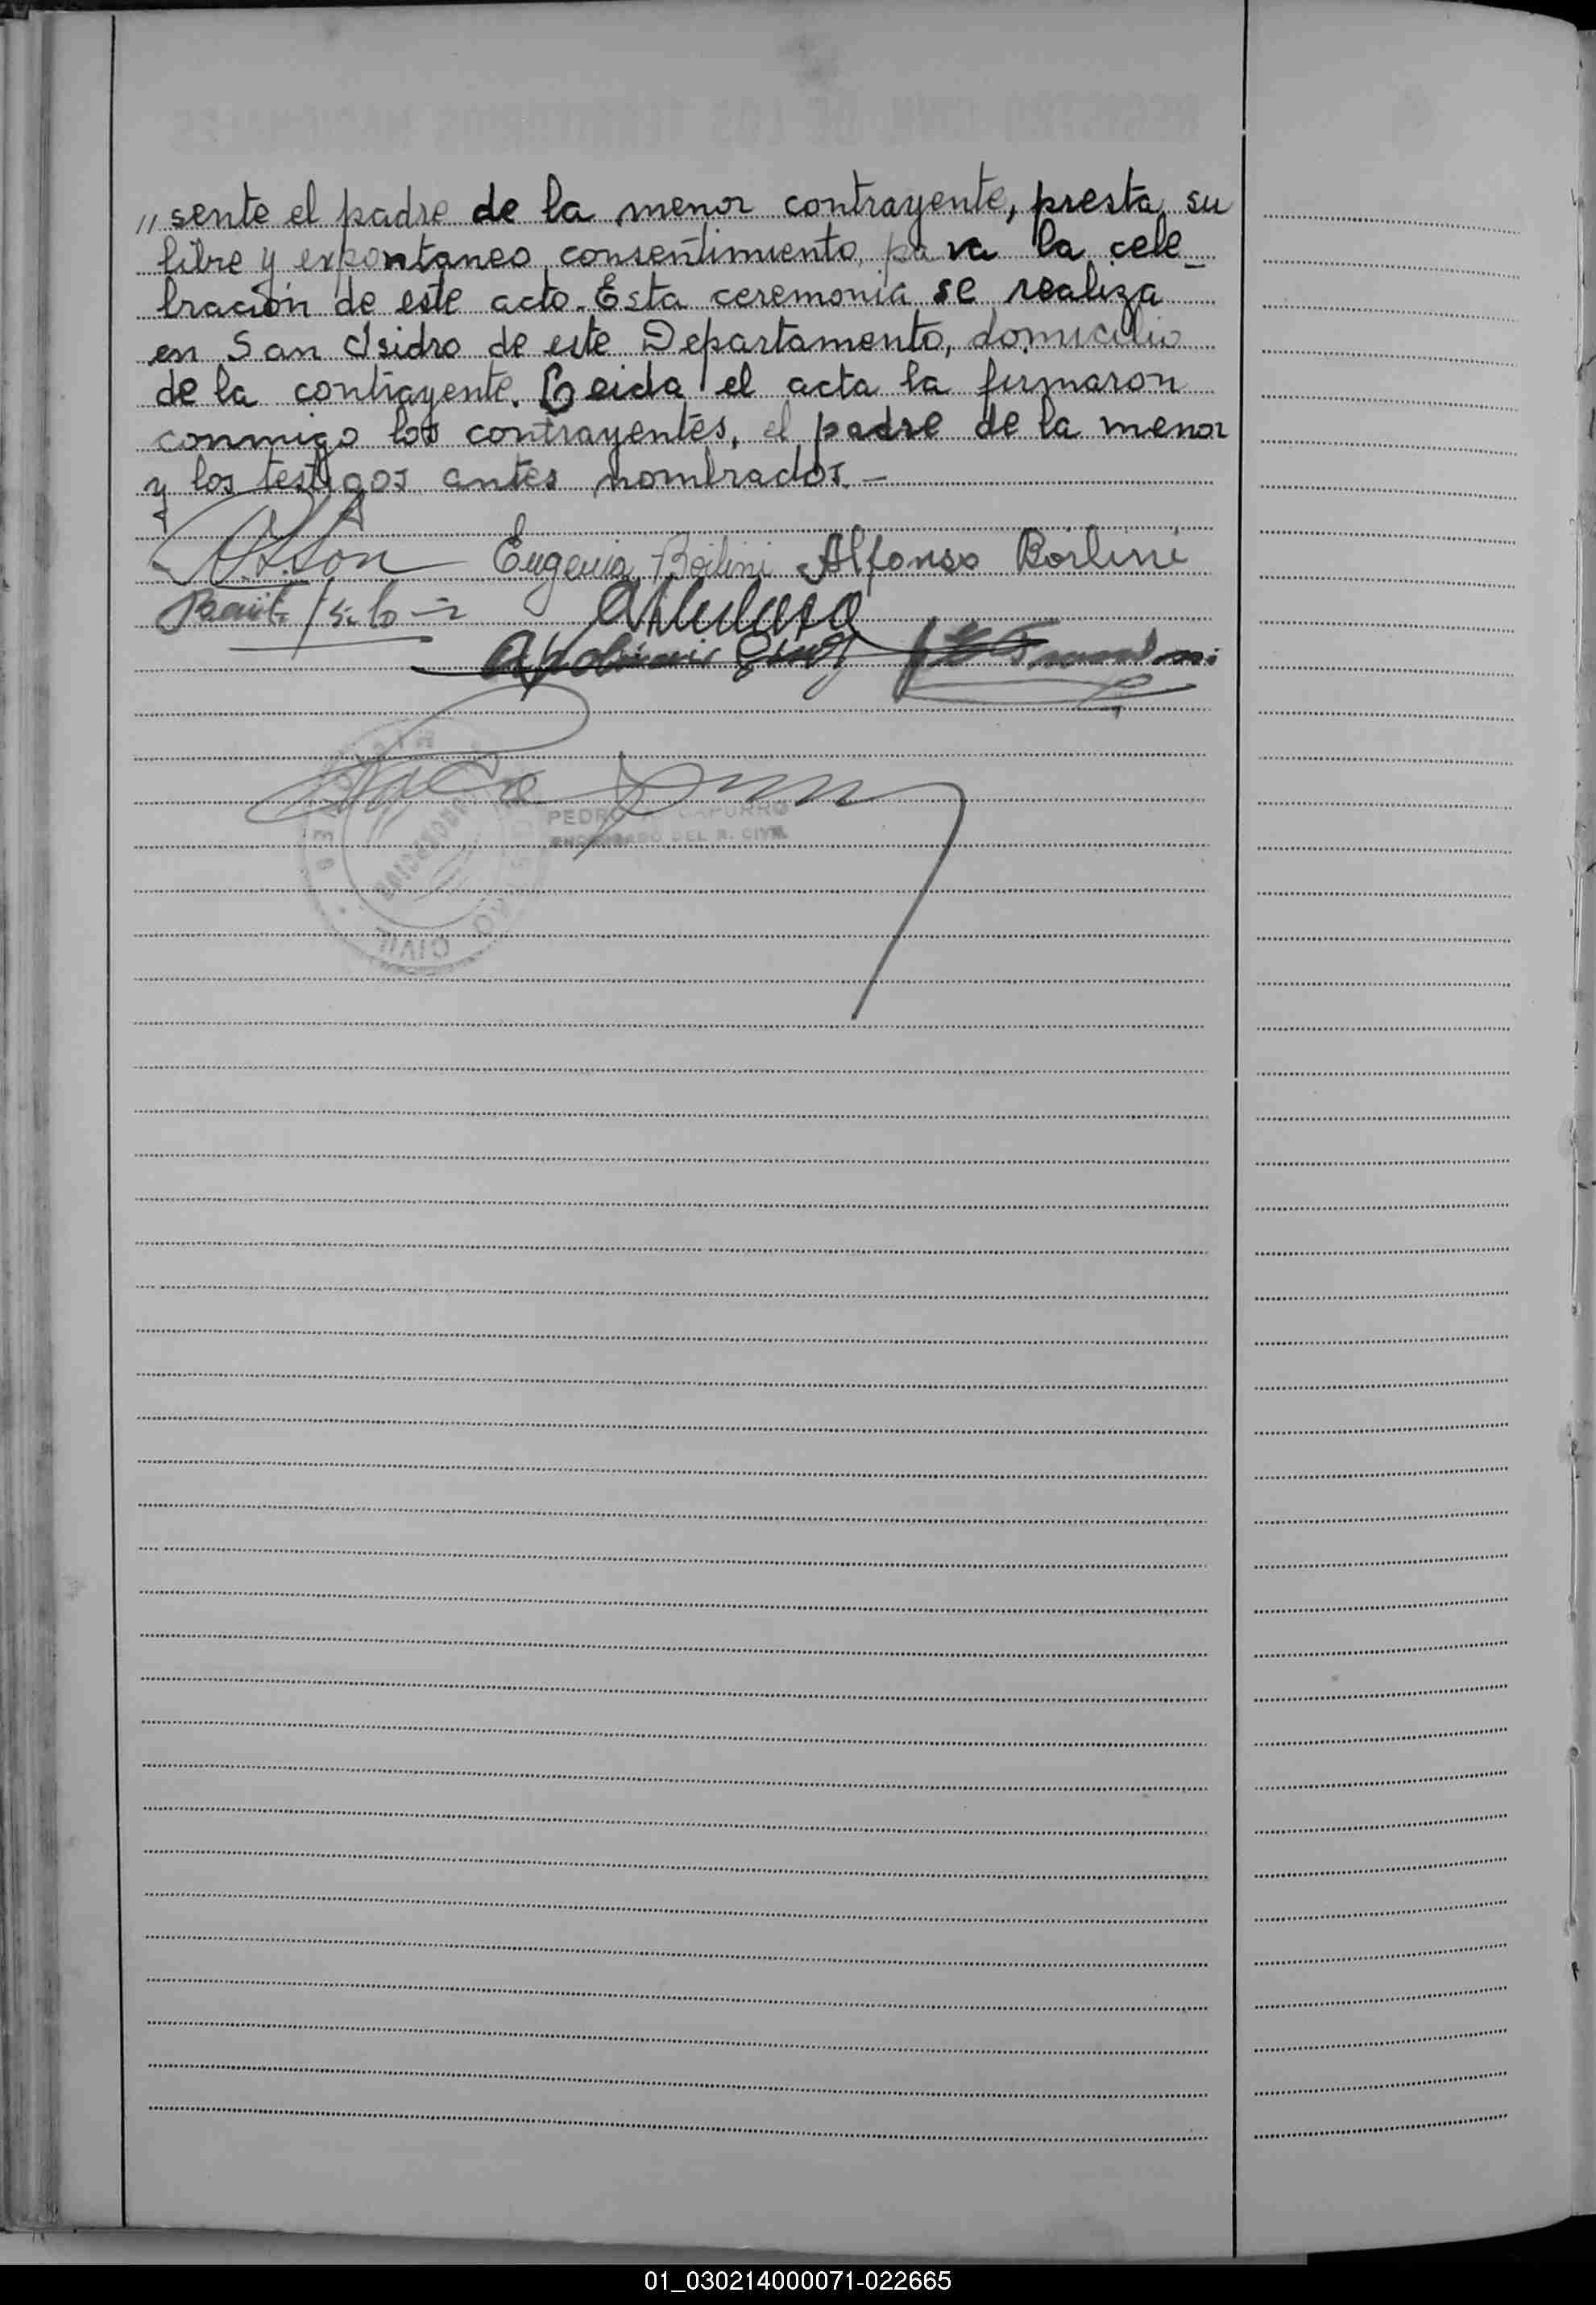 „ sente el padre de la menor contrayente, presta su
libre y expontaneo consentimiento para la cele_
bración de este acto. Esta ceremonia se realiza
en San Isidro de este Departamento, domicilio
de la contrayente. Leida el acta la firmaron
conmigo los contrayentes, el padre de la menor
y los testigos antes nombrados. —
Eugenia Borlini Alfonso Borlini
PEDRO CAPURRO
ENCARGADO DEL R. CIVIL
CIVIL
01_030214000071-022665